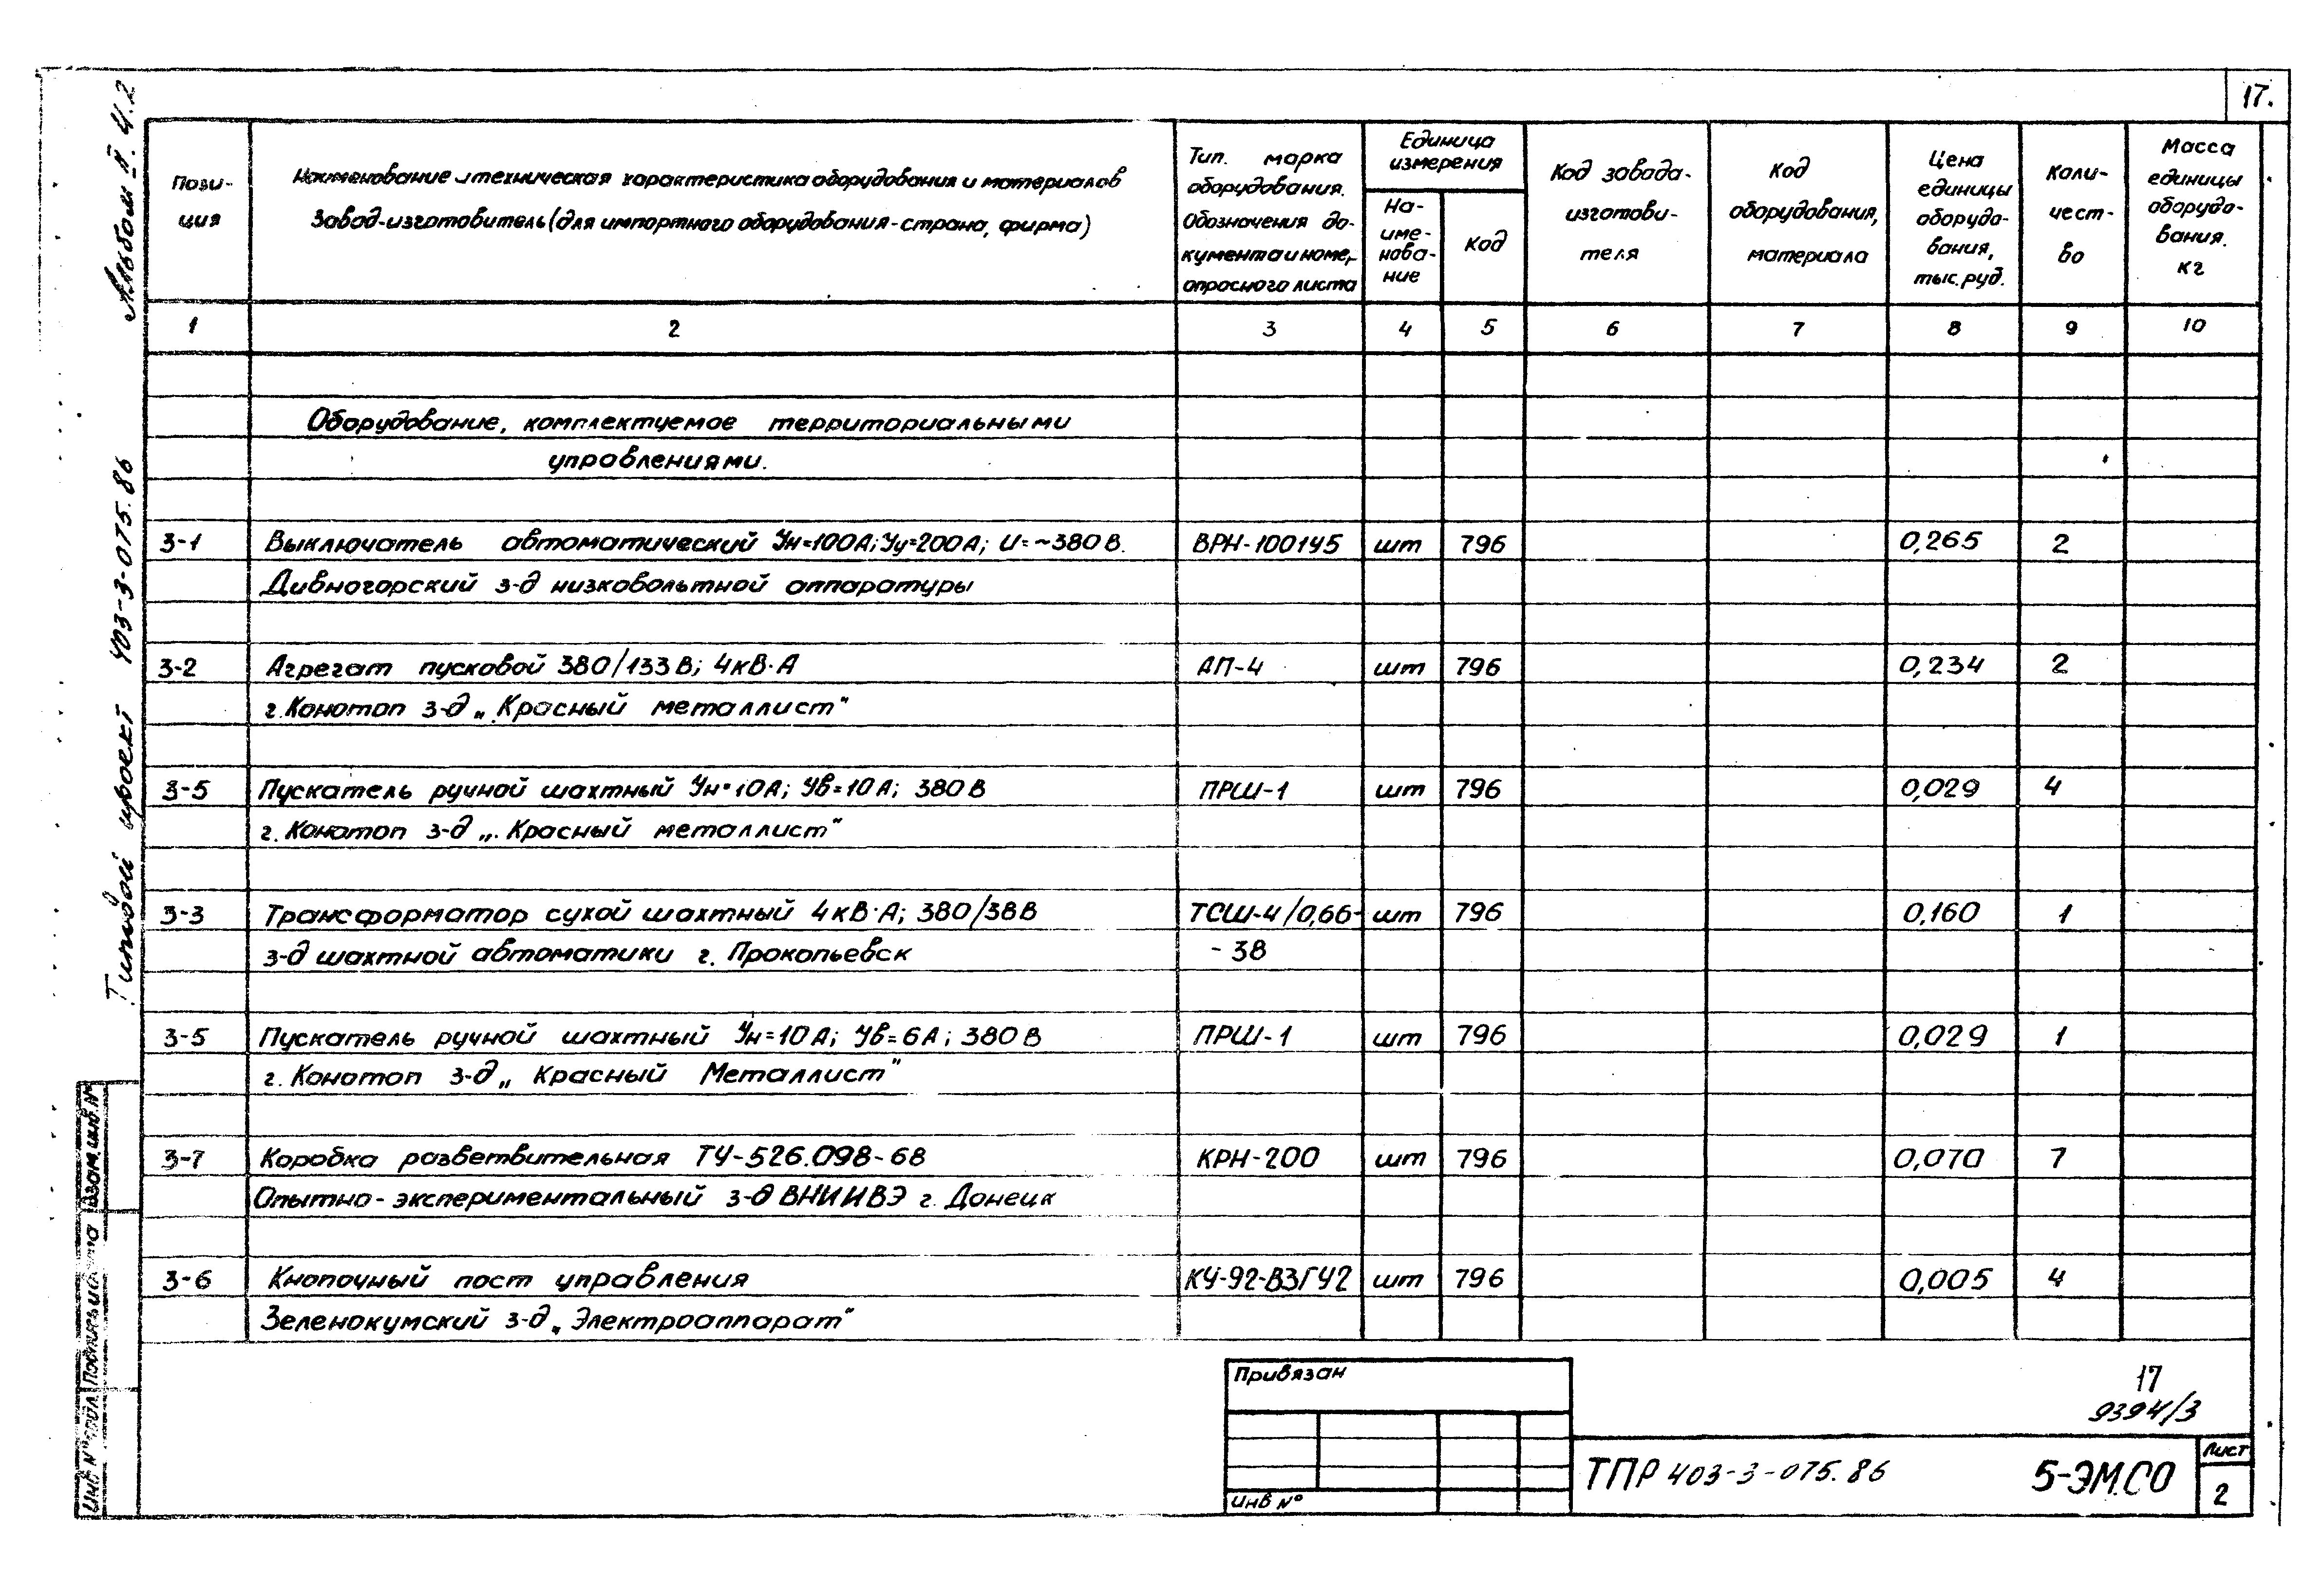 17.
Альбом II. Ч.2
Типовой проект 403-3-075.86
Пози-
ция
Наименование и техническая характеристика оборудования и материалов
Завод-изготовитель (для импортного оборудования-страна, фирма)
Тип. марка
оборудования.
Обозначения до-
кумента и номер
опросного листа
Единица
измерения
На-
име-
нова-
ние
Код
Код завода-
изготови-
теля
Код
оборудования,
материала
Цена
единицы
оборудо-
вания,
тыс.руд.
Коли-
чест-
во
Масса
единицы
оборудо-
вания.
кг
1 2 3 4 5 6 7 8 9 10
Оборудование, комплектуемое территориальными
управлениями.
3-1 Выключатель автоматический Jн=100А; Jу=200А; U=~380В. ВРН-100145 шт 796 0,265 2
Дивногорский з-д низковольтной аппаратуры
3-2 Агрегат пусковой 380/133В; 4кВ·А АП-4 шт 796 0,234 2
г.Конотоп з-д „Красный металлист“
3-5 Пускатель ручной шахтный Jн=10А; Jв=10А; 380В ПРШ-1 шт 796 0,029 4
г. Конотоп з-д „Красный металлист“
3-3 Трансформатор сухой шахтный 4кВ·А; 380/38В ТСШ-4/0,66- шт 796 0,160 1
з-д шахтной автоматики г. Прокопьевск - 38
3-5 Пускатель ручной шахтный Jн=10А; Jв=6А; 380В ПРШ-1 шт 796 0,029 1
г. Конотоп з-д „Красный Металлист“
3-7 Коробка разветвительная ТУ-526.098-68 КРН-200 шт 796 0,070 7
Опытно-экспериментальный з-д ВНИИВЭ г. Донецк
3-6 Кнопочный пост управления КУ-92-ВЗГУ2 шт 796 0,005 4
Зеленокумский з-д „Электроаппарат“
Взам.инв.№
Подпись и дата
Инв № подл.
Привязан
Инв №
17
9394/3
ТПР 403-3-075.86 5-ЭМ.СО
Лист
2